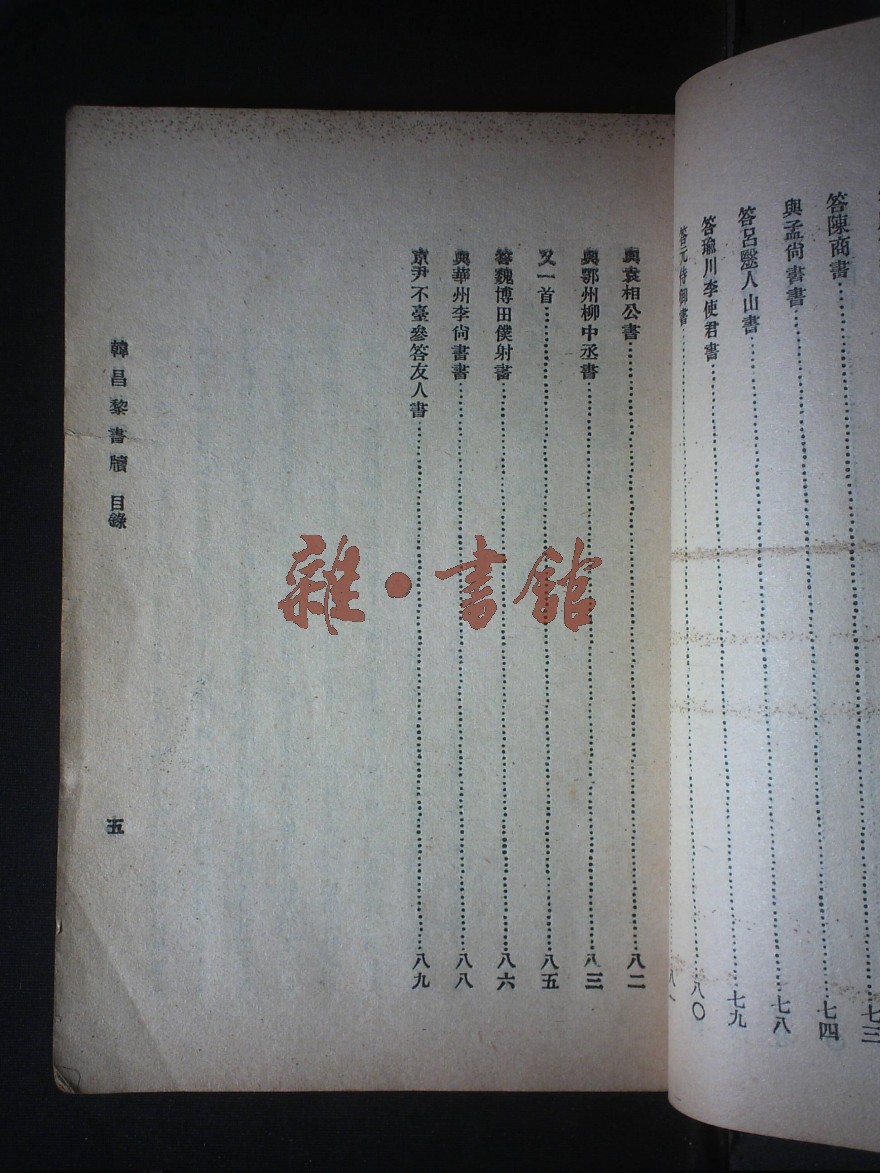 答陳商書……七四
與孟尙書書……七八
答呂毉人山書……七九
答瑜川李使君書……八〇
答元侍御書……八一
與袁相公書……八二
與鄂州柳中丞書……八三
又一首……八五
答魏博田僕射書……八六
與華州李尙書書……八八
京尹不臺參答友人書……八九
韓昌黎書牘 目錄
五
雜·書館